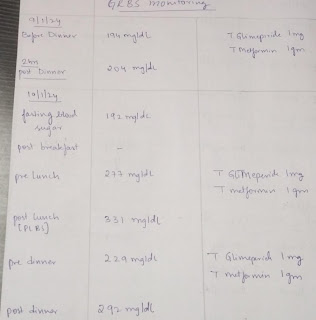 GRBS monitoring
9/1/24
Before Dinner 194 mg/dL T Glimeperide 1mg
T Metformin 1gm
2hr
post Dinner 204 mg/dL
10/1/24
fasting blood 192 mg/dL
sugar
post breakfast -
pre lunch 277 mg/dL T Glimeperide 1mg
T metformin 1gm
post lunch 331 mg/dL
[PLBS]
pre dinner 229 mg/dL T Glimeperide 1mg
T metformin 1gm
post dinner 292 mg/dL